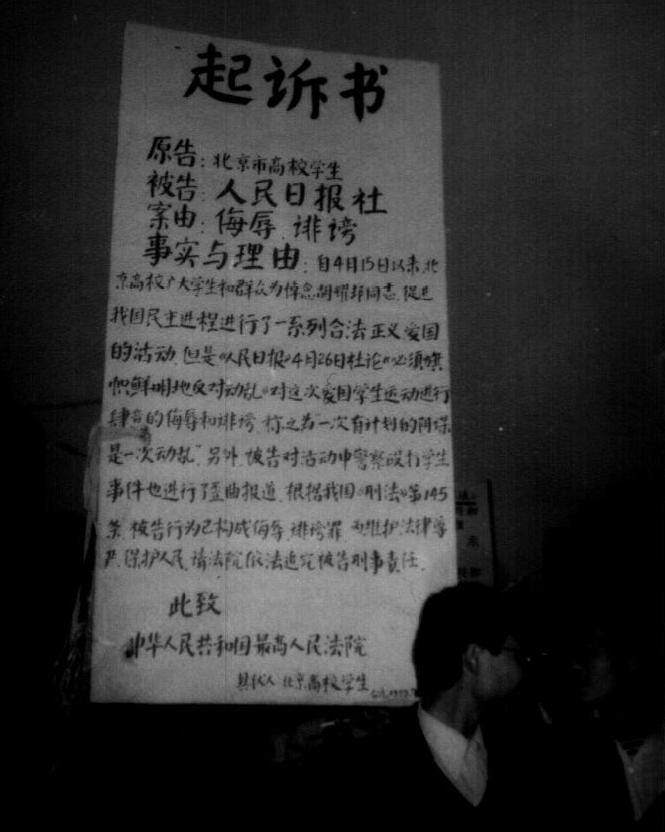 起诉书
原告：北京市高校学生
被告：人民日报社
案由：侮辱、诽谤
事实与理由：自4月15日以来，北
京高校广大学生和群众为悼念胡耀邦同志，促进
我国民主进程进行了一系列合法正义爱国
的活动，但是《人民日报》4月26日社论《必须旗
帜鲜明地反对动乱》对这次爱国学生运动进行
肆意的侮辱和诽谤，称之为“一次有计划的阴谋
是一次动乱”。另外，被告对活动中警察殴打学生
事件也进行了歪曲报道。根据我国《刑法》第145
条，被告行为已构成侮辱、诽谤罪，为维护法律尊
严，保护人民，请法院依法追究被告刑事责任。
此致
中华人民共和国最高人民法院
具状人 北京高校学生